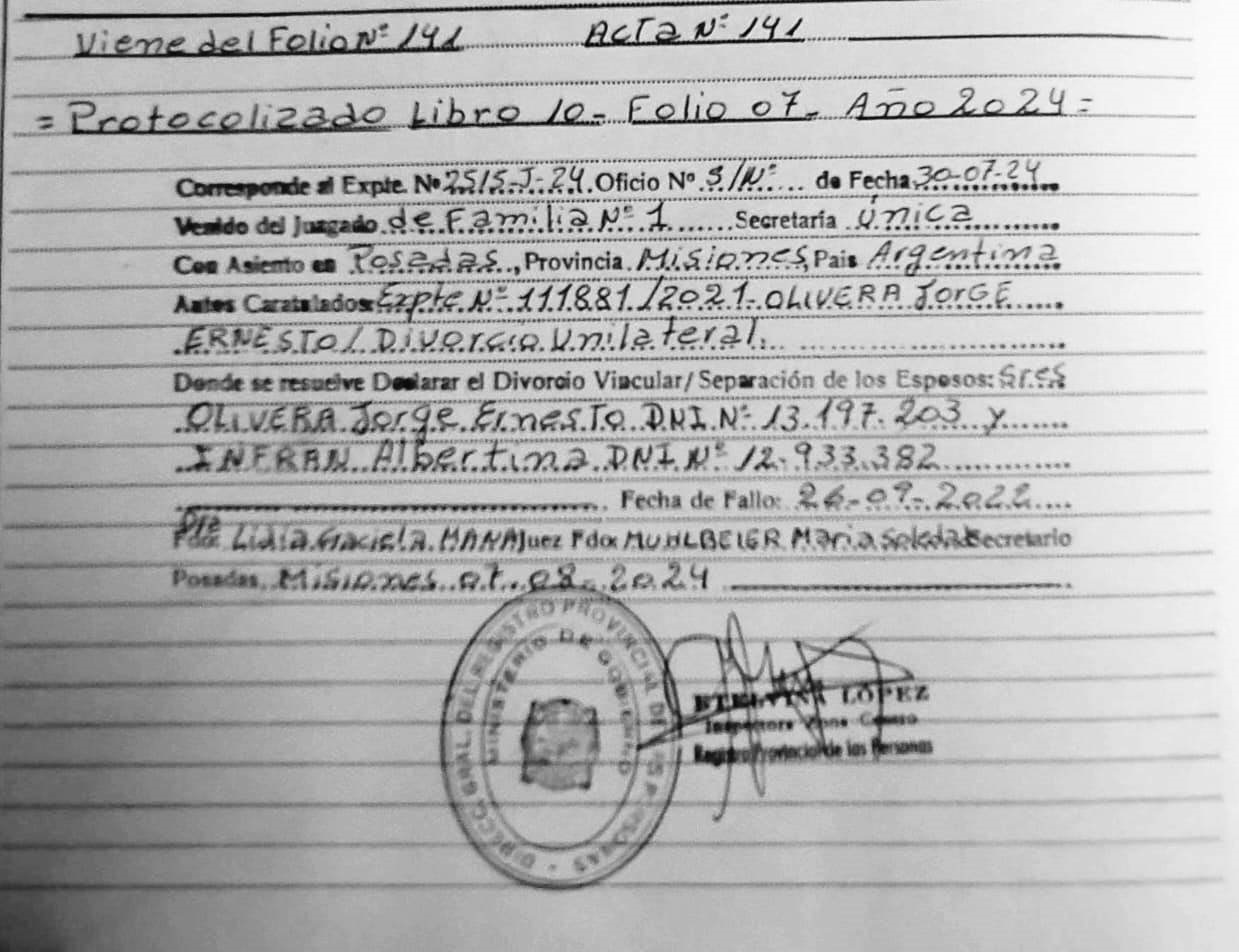 Viene del Folio Nº 141 Acta Nº 141
= Protocolizado Libro 10- Folio 07- Año 2024=
Corresponde al Expte. Nº 2515-J-24. Oficio Nº S/Nº... de Fecha 30-07-24
Venido del Juzgado de Familia Nº 1 ...... Secretaría Única
Con Asiento en Posadas, Provincia Misiones, Pais Argentina
Autos Caratulados: Expte Nº 111881/2021- OLIVERA JORGE
ERNESTO / Divorcio Unilateral.
Donde se resuelve Declarar el Divorcio Vincular/ Separación de los Esposos: Sres
OLIVERA Jorge Ernesto DNI Nº 13.197.203 y
INFRAN Albertina DNI Nº 12.933.382
Fecha de Fallo: 26-09-2022
Dra
Fdo: Lidia Graciela MANA Juez Fdo: MUHLBEIER Maria Soledad Secretario
Posadas, Misiones 07-08-2024
DIRECC. GRAL. DEL REGISTRO PROVINCIAL DE LAS PERSONAS
MINISTERIO DE GOBIERNO
ETELVINA LÓPEZ
Inspectora Zona Centro
Registro Provincial de las Personas